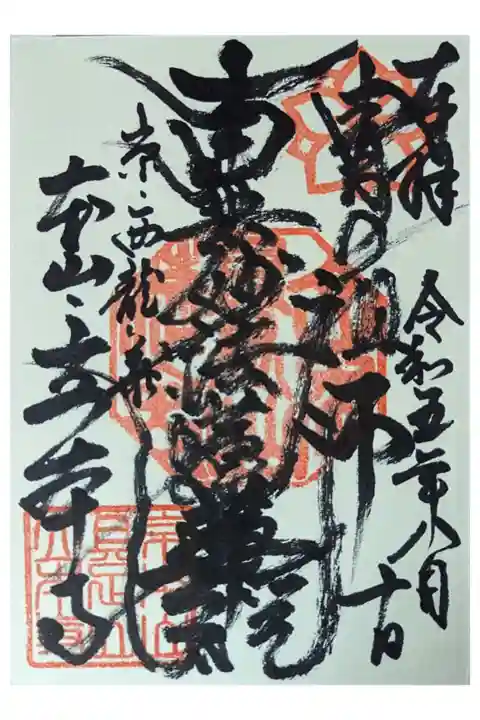 令和五年八月十日
の祖師
南無妙法蓮華経
京、西龍華
本山、立本寺